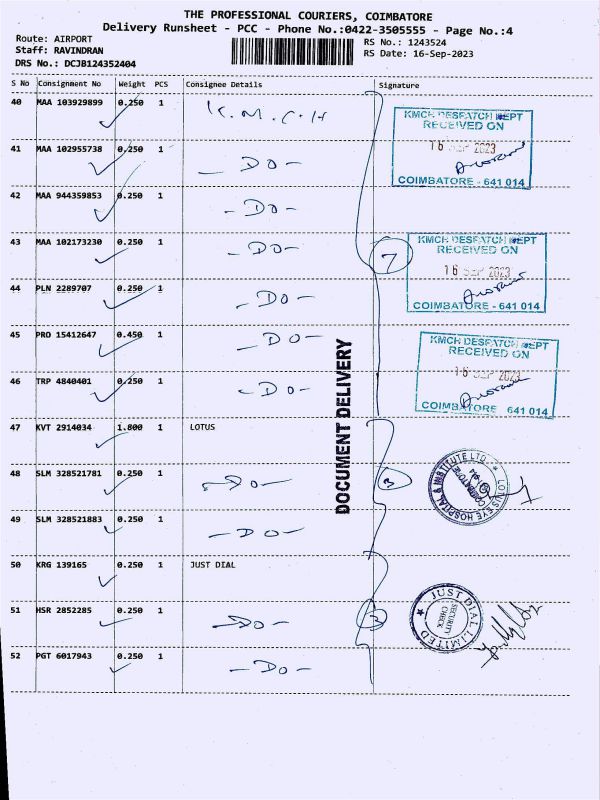 THE PROFESSIONAL COURIERS, COIMBATORE
Delivery Runsheet - PCC - Phone No.:0422-3505555 - Page No.:4
Route: AIRPORT
RS No.: 1243524
Staff: RAVINDRAN
RS Date: 16-Sep-2023
DRS No.: DCJB124352404
S No Consignment No Weight PCS Consignee Details Signature
40 MAA 103929899 0.250 1 K.M.C.H
KMCH DESPATCH DEPT
RECEIVED ON
16 SEP 2023
COIMBATORE - 641 014
41 MAA 102955738 0.250 1 - DO -
42 MAA 944359853 0.250 1 - DO -
43 MAA 102173230 0.250 1 - DO -
7
KMCH DESPATCH DEPT
RECEIVED ON
16 SEP 2023
COIMBATORE - 641 014
44 PLN 2289707 0.250 1 - DO -
45 PRO 15412647 0.450 1 - DO -
KMCH DESPATCH DEPT
RECEIVED ON
16 SEP 2023
COIMBATORE 641 014
46 TRP 4840401 0.250 1 - DO -
DOCUMENT DELIVERY
47 KVT 2914034 1.800 1 LOTUS
48 SLM 328521781 0.250 1 - DO -
3
LOTUS EYE HOSPITAL & INSTITUTE LTD
COIMBATORE
49 SLM 328521883 0.250 1 - DO -
50 KRG 139165 0.250 1 JUST DIAL
51 HSR 2852285 0.250 1 - DO -
3
JUST DIAL LIMITED
SECURITY
CHECK
52 PGT 6017943 0.250 1 - DO -